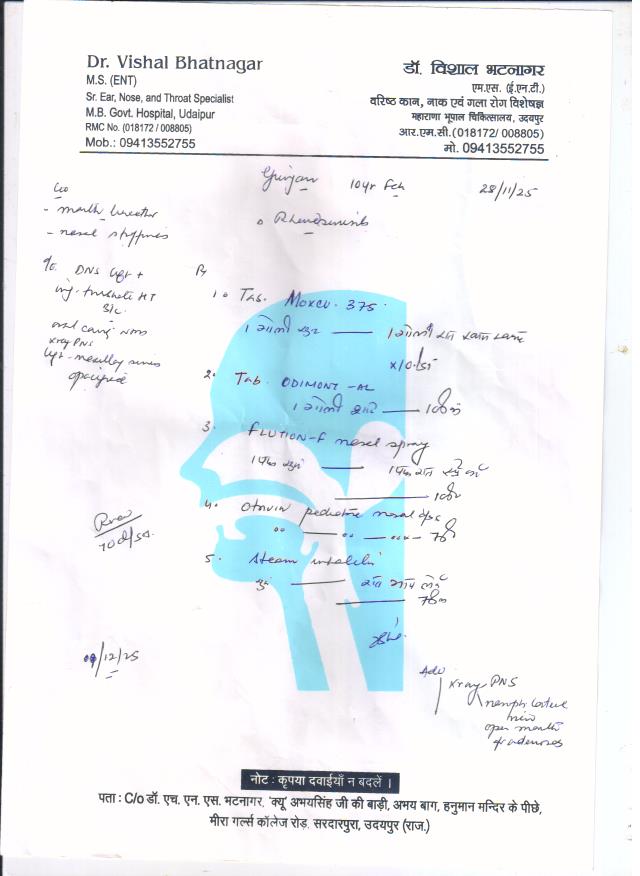 Dr. Vishal Bhatnagar
M.S. (ENT)
Sr. Ear, Nose, and Throat Specialist
M.B. Govt. Hospital, Udaipur
RMC No. (018172 / 008805)
Mob.: 09413552755
डॉ. विशाल भटनागर
एम.एस. (ई.एन.टी.)
वरिष्ठ कान, नाक एवं गला रोग विशेषज्ञ
महाराणा भूपाल चिकित्सालय, उदयपुर
आर.एम.सी.(018172/ 008805)
मो. 09413552755
Gunjan 10yr Fch 28/11/25
C/o
- mouth breather
- nasal stuffiness
O/e DNS left +
inf. turbinate HT
B/L
oral cavity NAD
Xray PNS
left - maxillary sinus
opacified
Rx
1. Tab. Moxcv 375
1 गोली सुबह 1 गोली रात
x 10 days
2. Tab. ODIMONT-AL
1 गोली 10
3. FLUTION-F nasal spray
10
4. Otrivin pediatric nasal drops
7
5. Steam inhalation
7
Rev
10 days
09/12/25
Adv
Xray PNS
nasopharynx lateral
view
open mouth
for adenoids
नोट : कृपया दवाईयाँ न बदलें ।
पता : C/o डॉ. एच. एन. एस. भटनागर, 'क्यू' अभयसिंह जी की बाड़ी, अभय बाग, हनुमान मन्दिर के पीछे,
मीरा गर्ल्स कॉलेज रोड़, सरदारपुरा, उदयपुर (राज.)